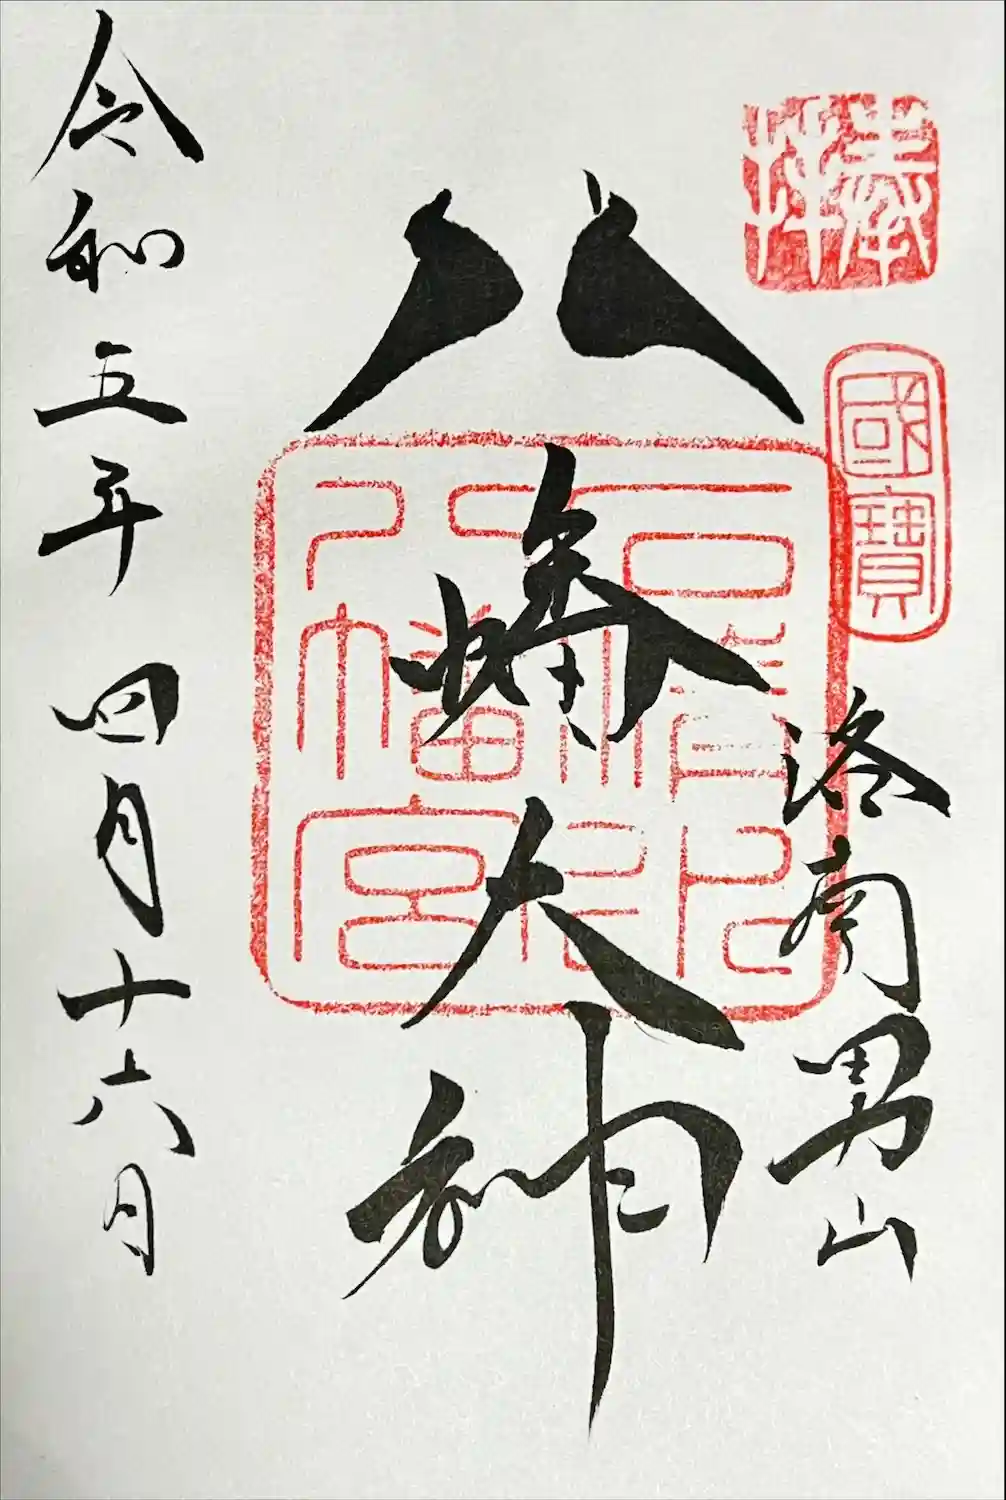 奉拝
國寶
洛南男山
八幡大神
石清水
八幡宮
令和五年 四月十六日